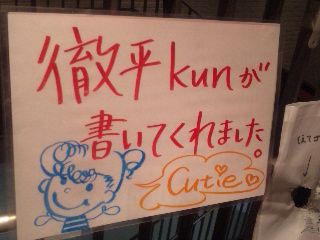 徹平kunが
書いてくれました。
Cutie